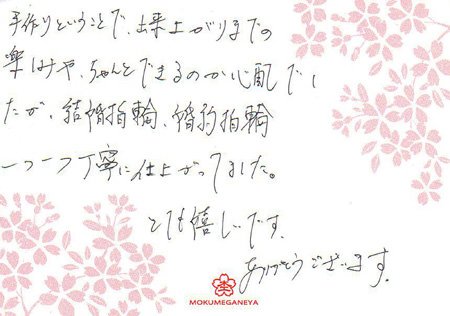 手作りということで、出来上がりまでの
楽しみや、ちゃんとできるのか心配でし
たが、結婚指輪、婚約指輪
一つ一つ丁寧に仕上がってました。
とても嬉しいです。
ありがとうございます。
MOKUMEGANEYA